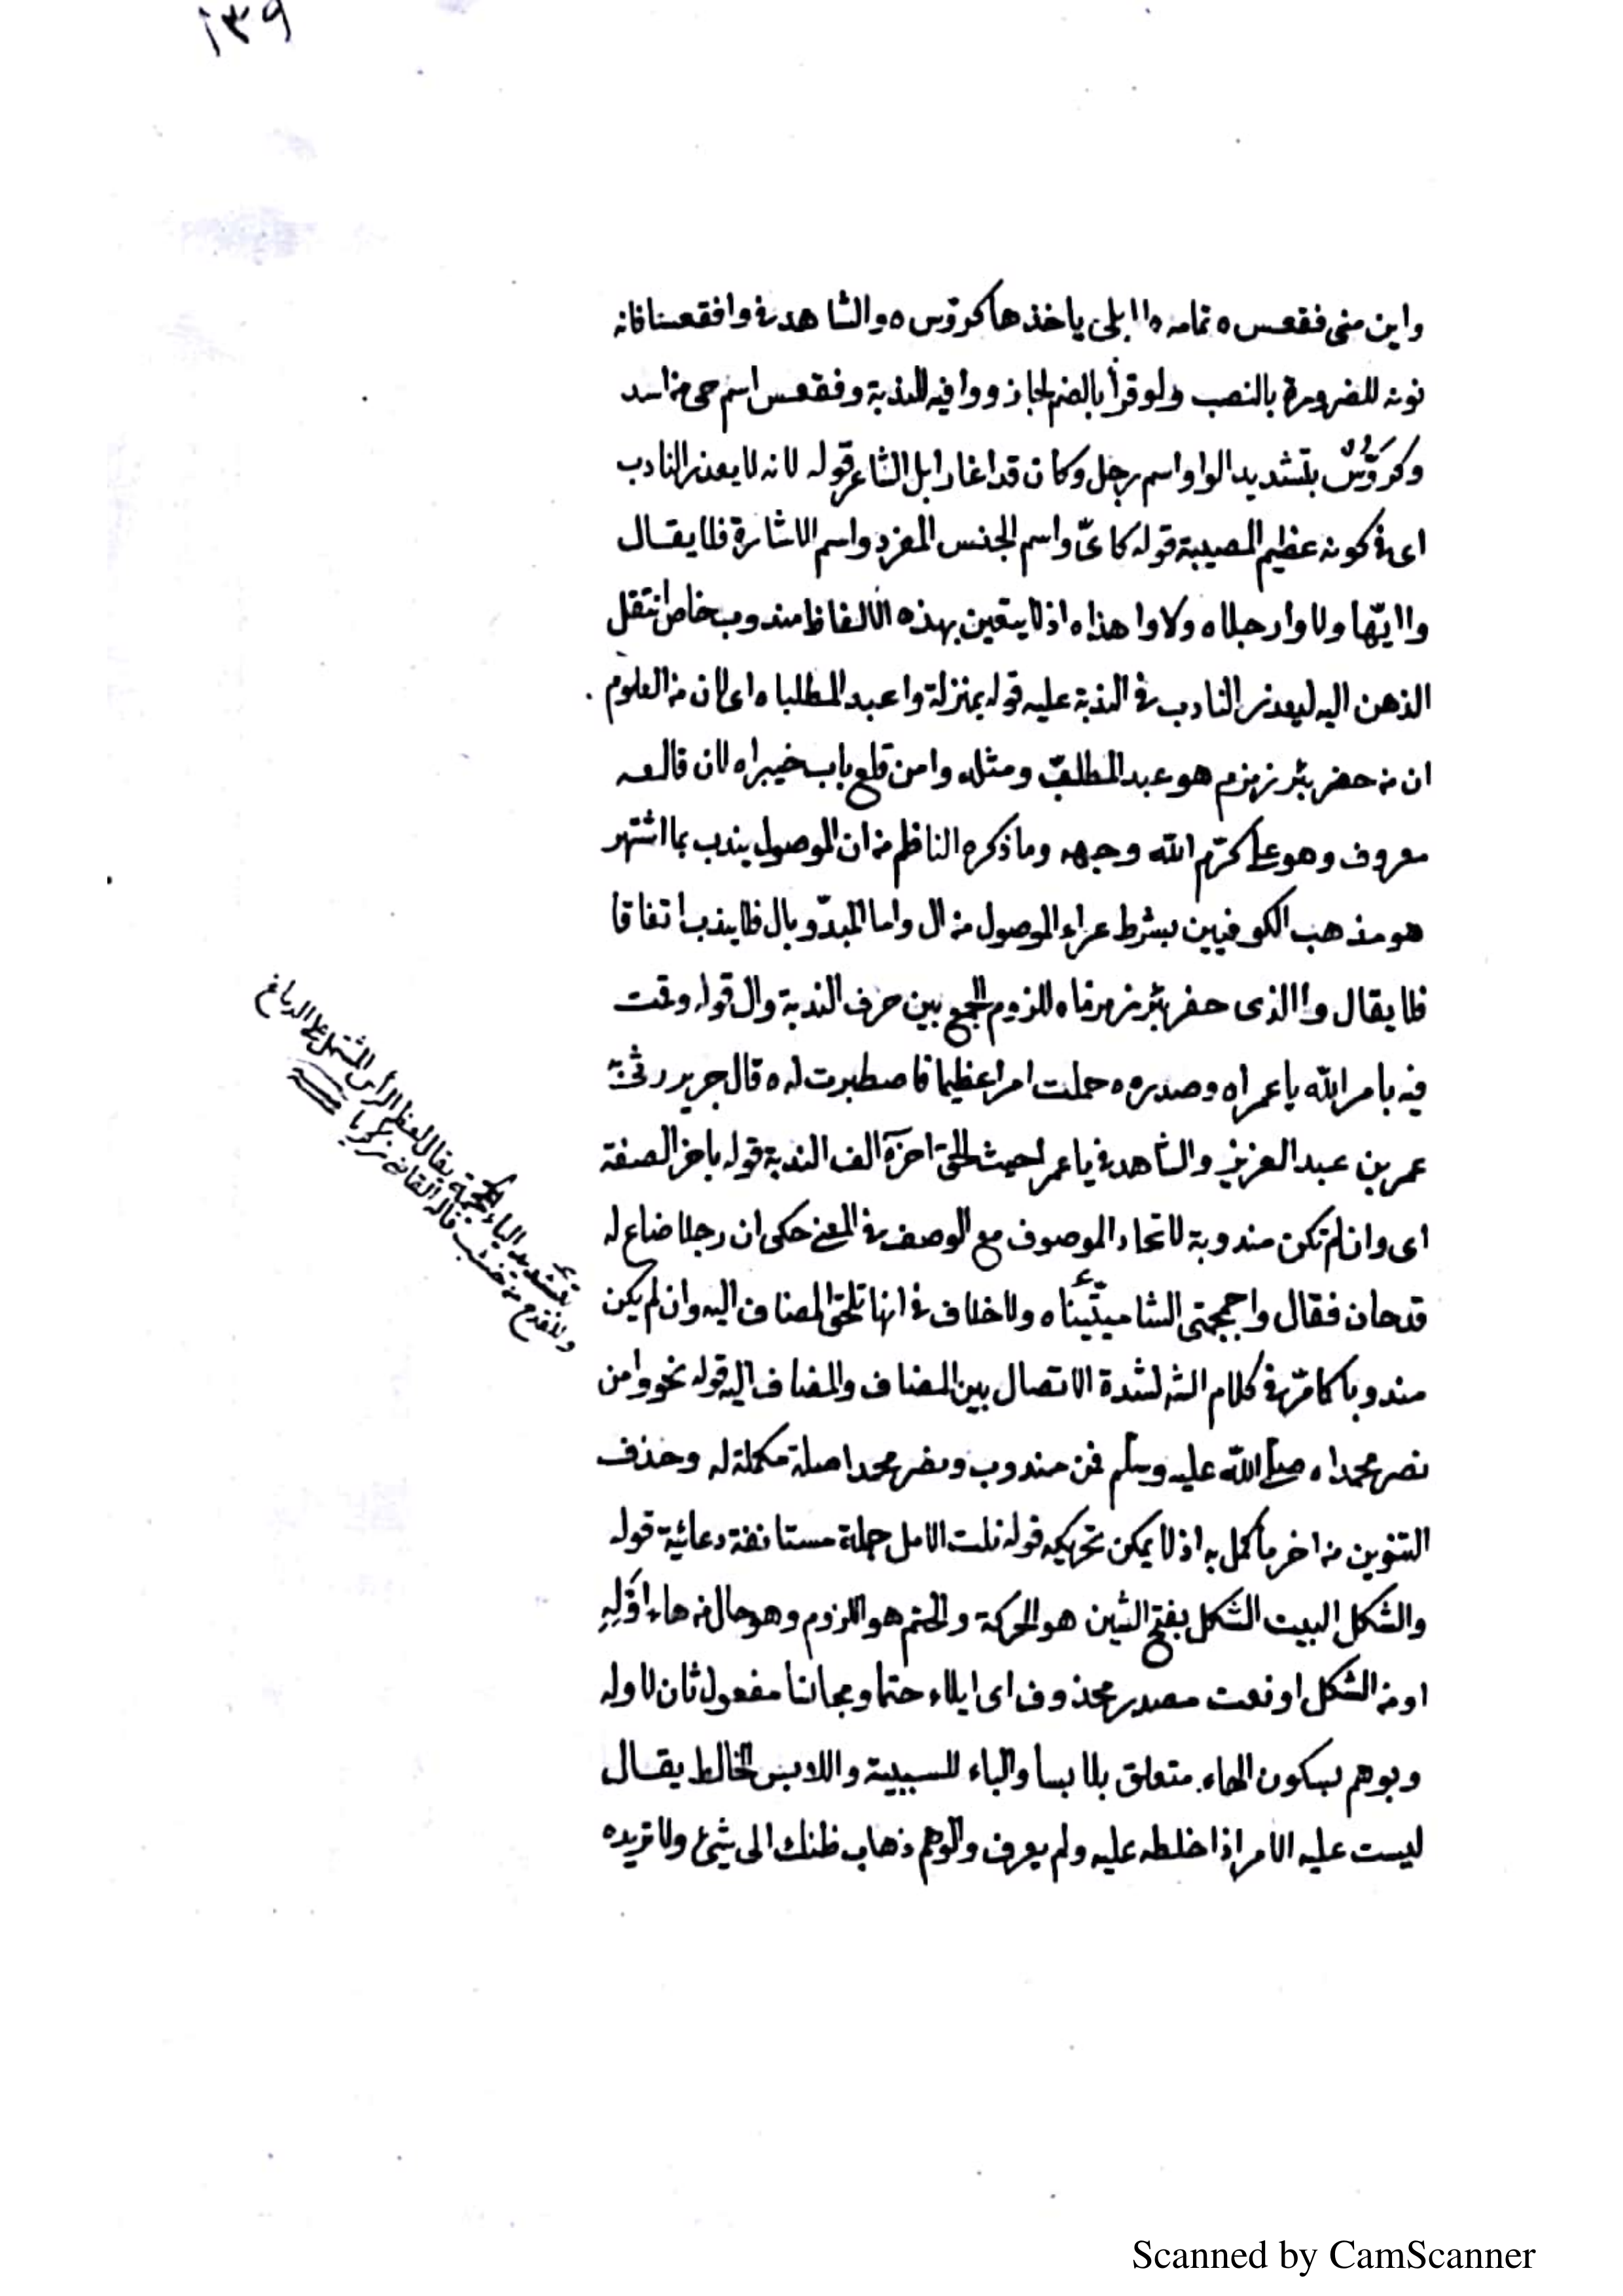 ١٣٩
واين منى فقعس ه تمامه ه اابلى ياخذها كروّس ه والشاهد فى وافقعسا فانه
نونه للضرورة بالنصب ولو قرأ بالضم لجاز ووا فيه للندبة وفقعس اسم حى من اسد
وكروّسٌ بتشديد الواو اسم رجل وكان قد اغار ابل الشاعر قوله لانه لا يعذر النادب
اى فى كونه عظيم المصيبة قوله كاىّ واسم الجنس المفرد واسم الاشارة فلا يقال
وا ايّها ولا وا رجلاه ولا وا هذاه اذ لا يتعين بهذه الالفاظ مندوب خاص انتقل
الذهن اليه ليعذر النادب فى الندبة عليه قوله بمنزلة وا عبد المطلباه اى لان من المعلوم
ان من حفر بئر زمزم هو عبد المطلب ومثله وامن قلع باب خيبراه لان قالعه
معروف وهو على كرّم الله وجهه وما ذكره الناظم من ان الموصول يندب بما اشتهر
هو مذهب الكوفيين بشرط عراء الموصول من ال واما المبدّو بال فلا يندب اتفاقا
فلا يقال وا الذى حفر بئر زمزماه للزوم الجمع بين حرف الندبة وال قوله وقمت
فيه بامر الله يا عمراه وصدره ه حملت امرا عظيما فاصطبرت له ه قال جرير رثى به
عمر بن عبد العزيز والشاهد فى يا عمرا حيث لحق اخره الف الندبة قوله باخر الصفة
اى وان لم تكن مندوبة لاتحاد الموصوف مع الوصف فى المعنى حكى ان رجلا ضاع له
قدحان فقال واجمجمتى الشاميتيناه ولا خلاف فى انها تلحق المضاف اليه وان لم يكن
مندوبا كما مرّ فى كلام الشه لشدة الاتصال بين المضاف والمضاف اليه قوله نحو وامن
نصر محمداه صلى الله عليه وسلم فمن مندوب ونصر محمدا صلة مكملة له وحذف
التنوين من اخر ما كمل به اذ لا يمكن تحريكه قوله نلت الامل جملة مستانفة دعائية قوله
والشكل البيت الشكل بفتح الشين هو الحركة والحتم هو اللزوم وهو حال من هاء اوّلِهِ
او من الشكل او نعت مصدر محذوف اى ايلاء حتما ومجانسا مفعول ثان لاوله
وبوهم بسكون الهاء متعلق بلابسا والباء للسببية واللابس الخالط يقال
لبست عليه الامر اذا خلطه عليه ولم يعرف والوهم ذهاب ظنك الى شىء ولا تريده
بتشديد الياء يقال لعظم الرأس المشتمل على الدماغ
وللقدح من خشب قاله القانى زكريا
Scanned by CamScanner